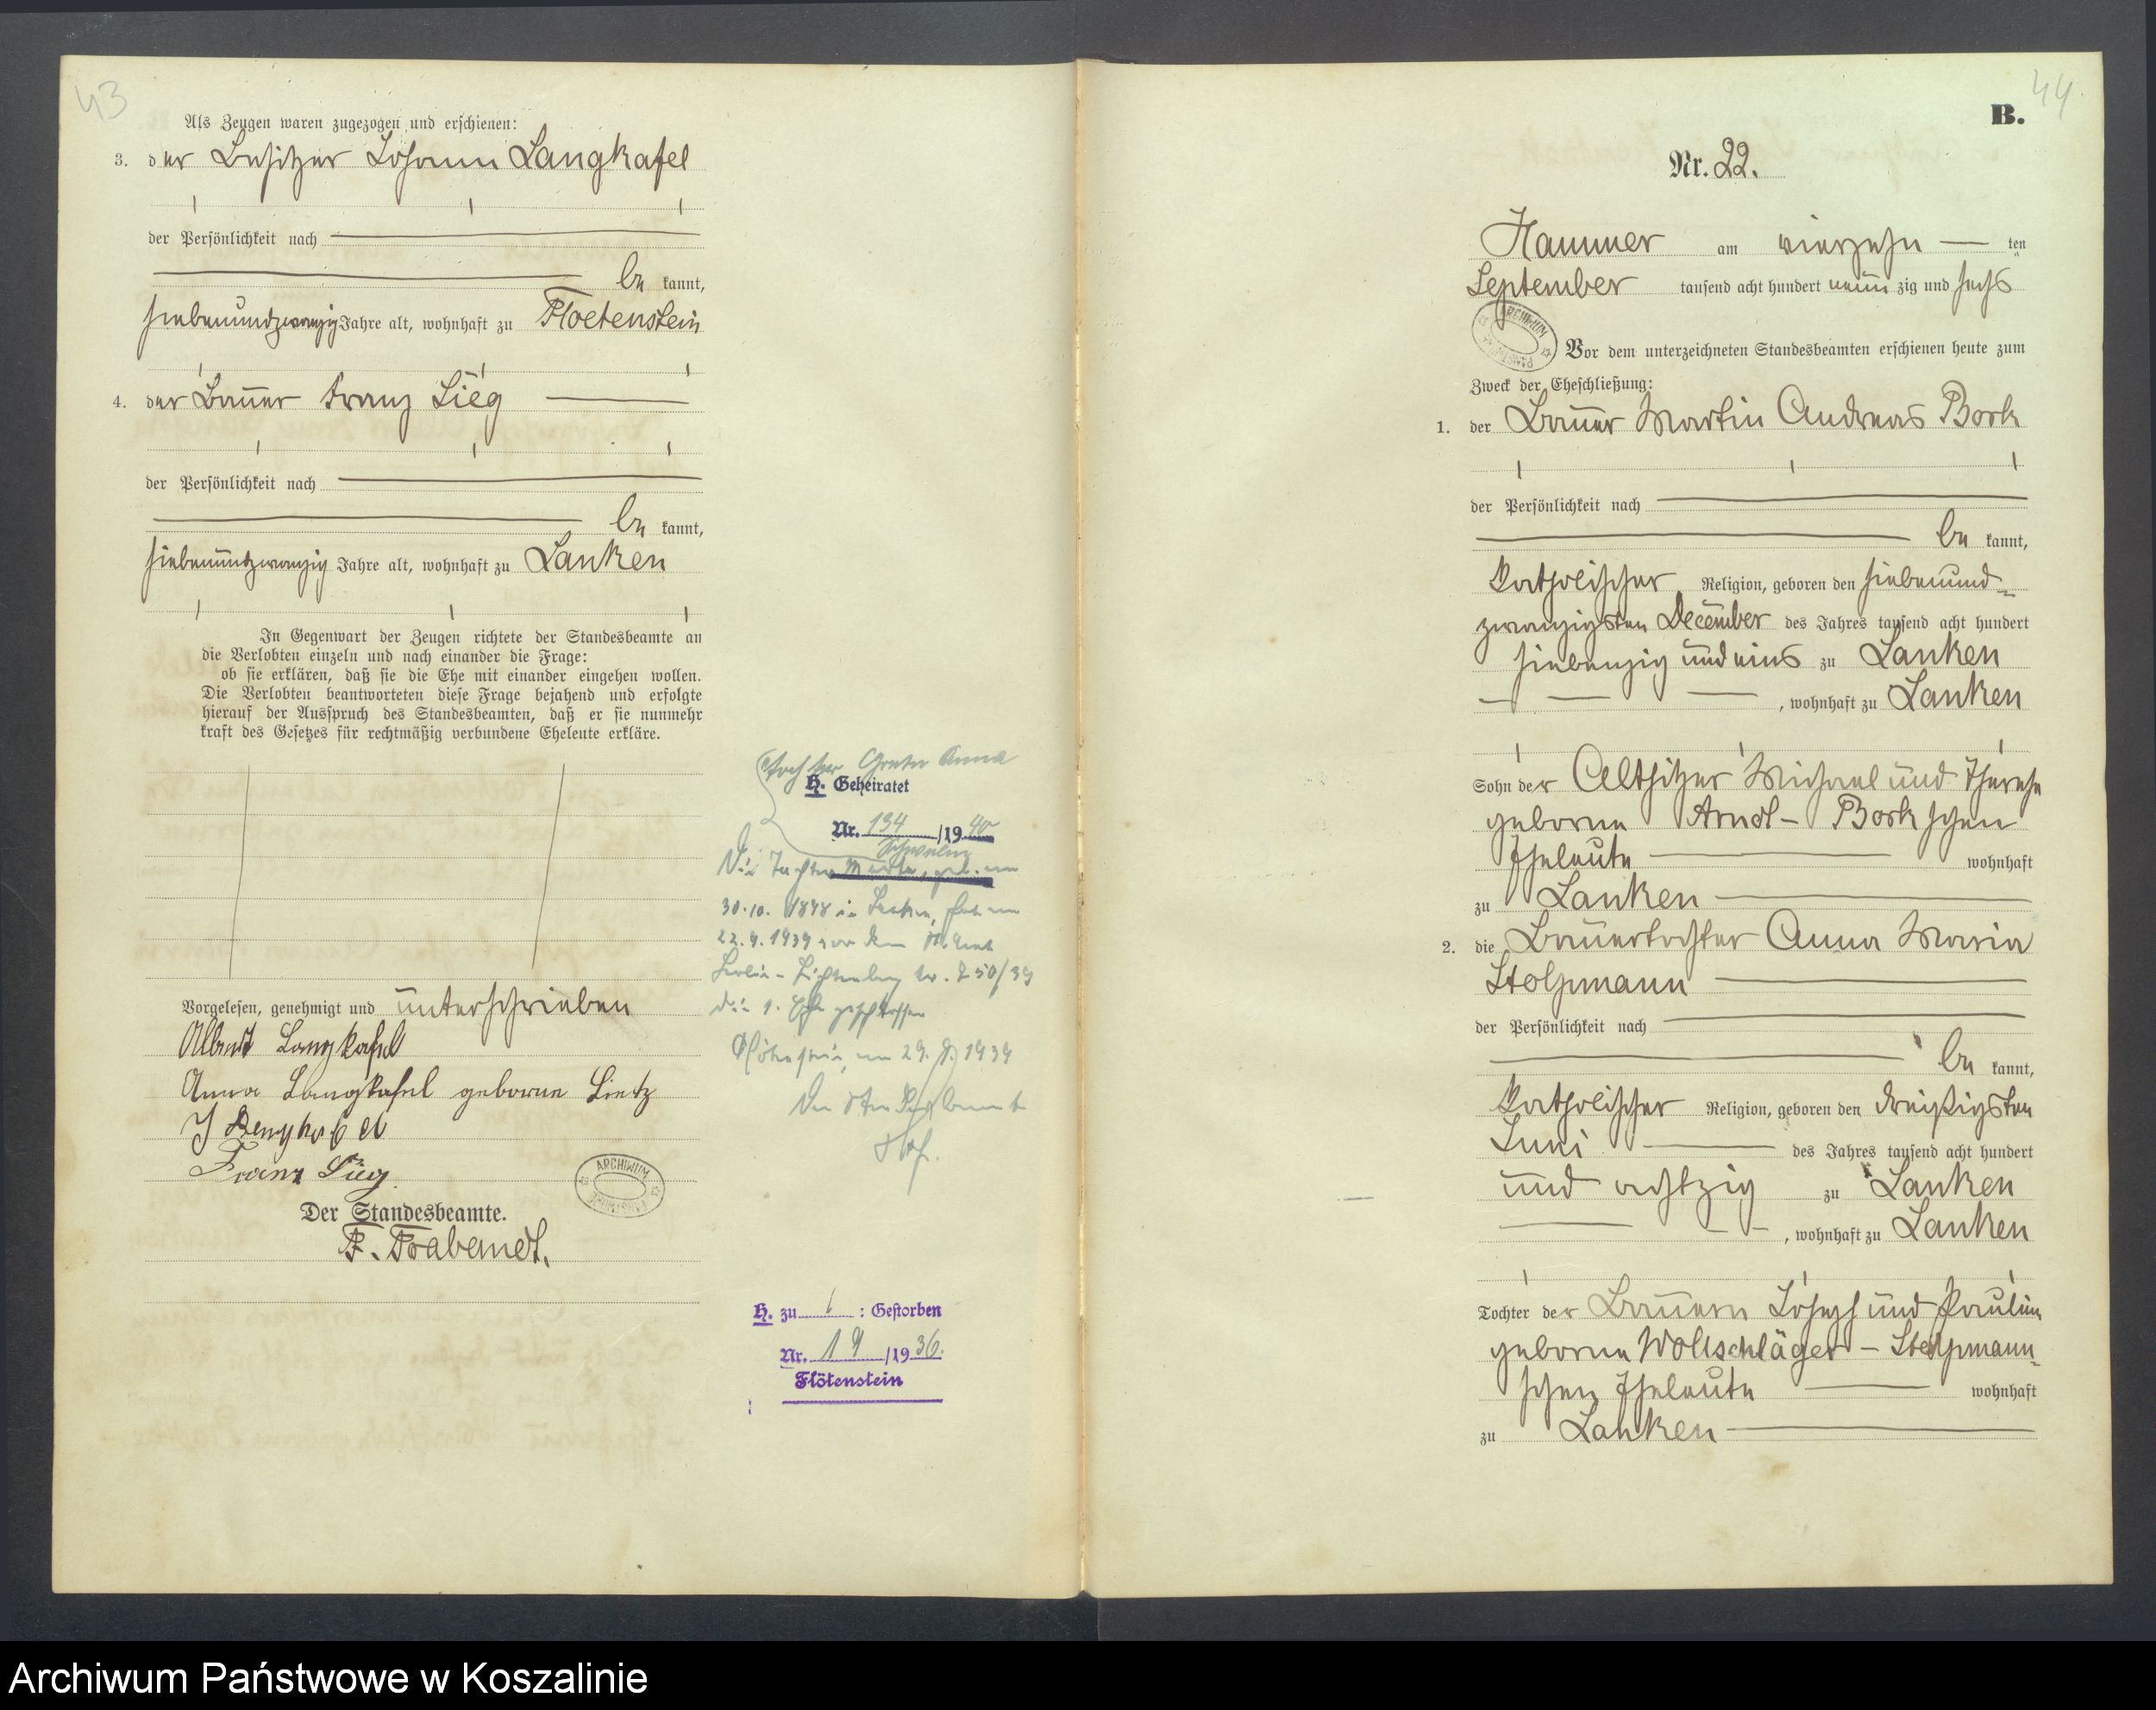 43
Als Zeugen waren zugezogen und erschienen:
3. der Besitzer Johann Langkafel
der Persönlichkeit nach
be kannt,
siebenundzwanzig Jahre alt, wohnhaft zu Floetenstein
4. der Bauer Franz Sieg
der Persönlichkeit nach
be kannt,
siebenundzwanzig Jahre alt, wohnhaft zu Lanken
In Gegenwart der Zeugen richtete der Standesbeamte an
die Verlobten einzeln und nach einander die Frage:
ob sie erklären, daß sie die Ehe mit einander eingehen wollen.
Die Verlobten beantworteten diese Frage bejahend und erfolgte
hierauf der Ausspruch des Standesbeamten, daß er sie nunmehr
kraft des Gesetzes für rechtmäßig verbundene Eheleute erkläre.
Vorgelesen, genehmigt und unterschrieben
Albert Langkafel
Anna Langkafel geborne Lietz
J Langkafel
Franz Sieg
ARCHIWUM
Der Standesbeamte.
F. Trabandt.
Tochter Anna
H. Geheiratet
Nr. 134 /19 40
Die Tochter Martha, geb. am
30.10. 1898 in Lanken, hat am
22.4.1939 vor dem St. Amt
Berlin-Lichtenberg Nr. 250/39
die 1. Ehe geschlossen
Flötenstein, am 29. 1939
Der Standesbeamte
H. zu 1 : Gestorben
Nr. 19 /19 36.
Flötenstein
44
B.
Nr. 22.
Hammer am vierzehn ten
September tausend acht hundert neun zig und sechs
ARCHIWUM
Vor dem unterzeichneten Standesbeamten erschienen heute zum
Zweck der Eheschließung:
1. der Bauer Martin Andreas Bork
der Persönlichkeit nach
be kannt,
katholischer Religion, geboren den siebenund-
zwanzigsten December des Jahres tausend acht hundert
siebenzig und eins zu Lanken
, wohnhaft zu Lanken
Sohn der Altsitzer Michael und Therese
geborne Arndt - Bork schen
Eheleute wohnhaft
zu Lanken
2. die Bauertochter Anna Maria
Stolpmann
der Persönlichkeit nach
be kannt,
katholischer Religion, geboren den dreißigsten
Juni des Jahres tausend acht hundert
und achtzig zu Lanken
, wohnhaft zu Lanken
Tochter der Bauern Joseph und Pauline
geborne Wollschläger - Stolpmann-
schen Eheleute wohnhaft
zu Lanken
Archiwum Państwowe w Koszalinie